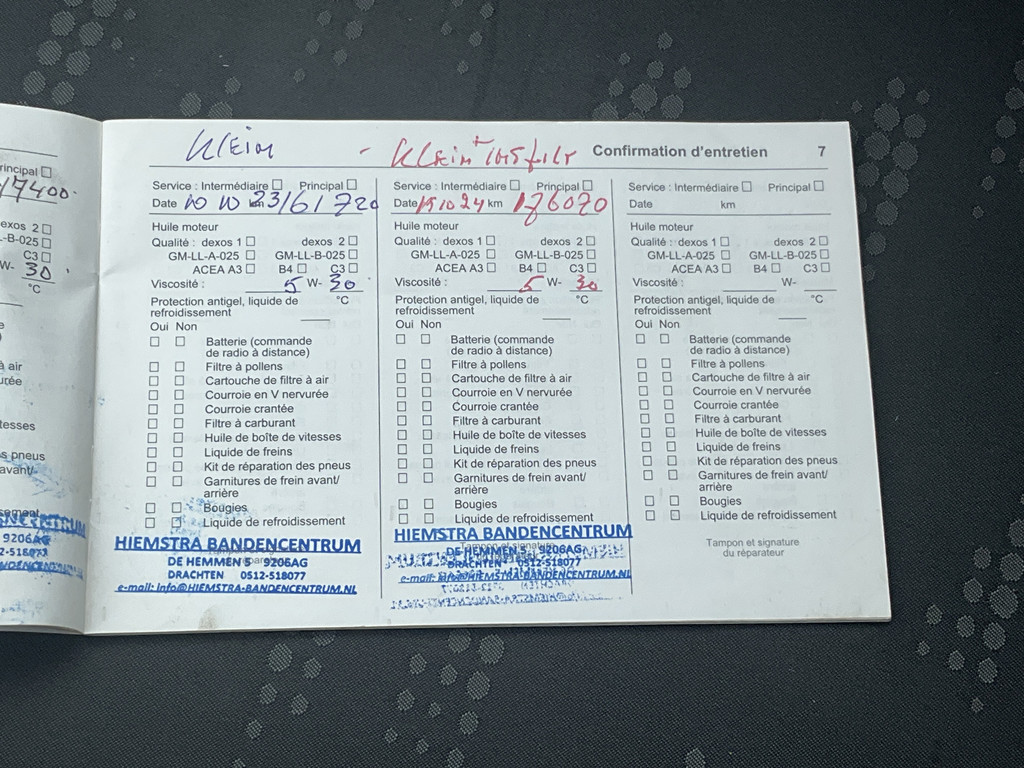 rincipal ☐
17400.
exos 2 ☐
-B-025 ☐
C3 ☐
W- 30
°C
à air
tesses
s pneus
avant/
9206AG
Klein
- Klein +
Confirmation d'entretien 7
Service : Intermédiaire ☐ Principal ☐
Date 10 10 23/61 720
Huile moteur
Qualité : dexos 1 ☐ dexos 2 ☐
GM-LL-A-025 ☐ GM-LL-B-025 ☐
ACEA A3 ☐ B4 ☐ C3 ☐
Viscosité : 5 W- 30
Protection antigel, liquide de refroidissement °C
Oui Non
☐ ☐ Batterie (commande
de radio à distance)
☐ ☐ Filtre à pollens
☐ ☐ Cartouche de filtre à air
☐ ☐ Courroie en V nervurée
☐ ☐ Courroie crantée
☐ ☐ Filtre à carburant
☐ ☐ Huile de boîte de vitesses
☐ ☐ Liquide de freins
☐ ☐ Kit de réparation des pneus
☐ ☐ Garnitures de frein avant/
arrière
☐ ☐ Bougies
☐ ☐ Liquide de refroidissement
HIEMSTRA BANDENCENTRUM
DE HEMMEN 5 9206AG
DRACHTEN 0512-518077
e-mail: info@HIEMSTRA-BANDENCENTRUM.NL
Service : Intermédiaire ☐ Principal ☐
Date 15 10 24 km 176070
Huile moteur
Qualité : dexos 1 ☐ dexos 2 ☐
GM-LL-A-025 ☐ GM-LL-B-025 ☐
ACEA A3 ☐ B4 ☐ C3 ☐
Viscosité : 5 W- 30
Protection antigel, liquide de refroidissement °C
Oui Non
☐ ☐ Batterie (commande
de radio à distance)
☐ ☐ Filtre à pollens
☐ ☐ Cartouche de filtre à air
☐ ☐ Courroie en V nervurée
☐ ☐ Courroie crantée
☐ ☐ Filtre à carburant
☐ ☐ Huile de boîte de vitesses
☐ ☐ Liquide de freins
☐ ☐ Kit de réparation des pneus
☐ ☐ Garnitures de frein avant/
arrière
☐ ☐ Bougies
☐ ☐ Liquide de refroidissement
HIEMSTRA BANDENCENTRUM
DE HEMMEN 5 9206AG
DRACHTEN 0512-518077
e-mail: HIEMSTRA-BANDENCENTRUM.NL
Service : Intermédiaire ☐ Principal ☐
Date km
Huile moteur
Qualité : dexos 1 ☐ dexos 2 ☐
GM-LL-A-025 ☐ GM-LL-B-025 ☐
ACEA A3 ☐ B4 ☐ C3 ☐
Viscosité : W-
Protection antigel, liquide de refroidissement °C
Oui Non
☐ ☐ Batterie (commande
de radio à distance)
☐ ☐ Filtre à pollens
☐ ☐ Cartouche de filtre à air
☐ ☐ Courroie en V nervurée
☐ ☐ Courroie crantée
☐ ☐ Filtre à carburant
☐ ☐ Huile de boîte de vitesses
☐ ☐ Liquide de freins
☐ ☐ Kit de réparation des pneus
☐ ☐ Garnitures de frein avant/
arrière
☐ ☐ Bougies
☐ ☐ Liquide de refroidissement
Tampon et signature
du réparateur